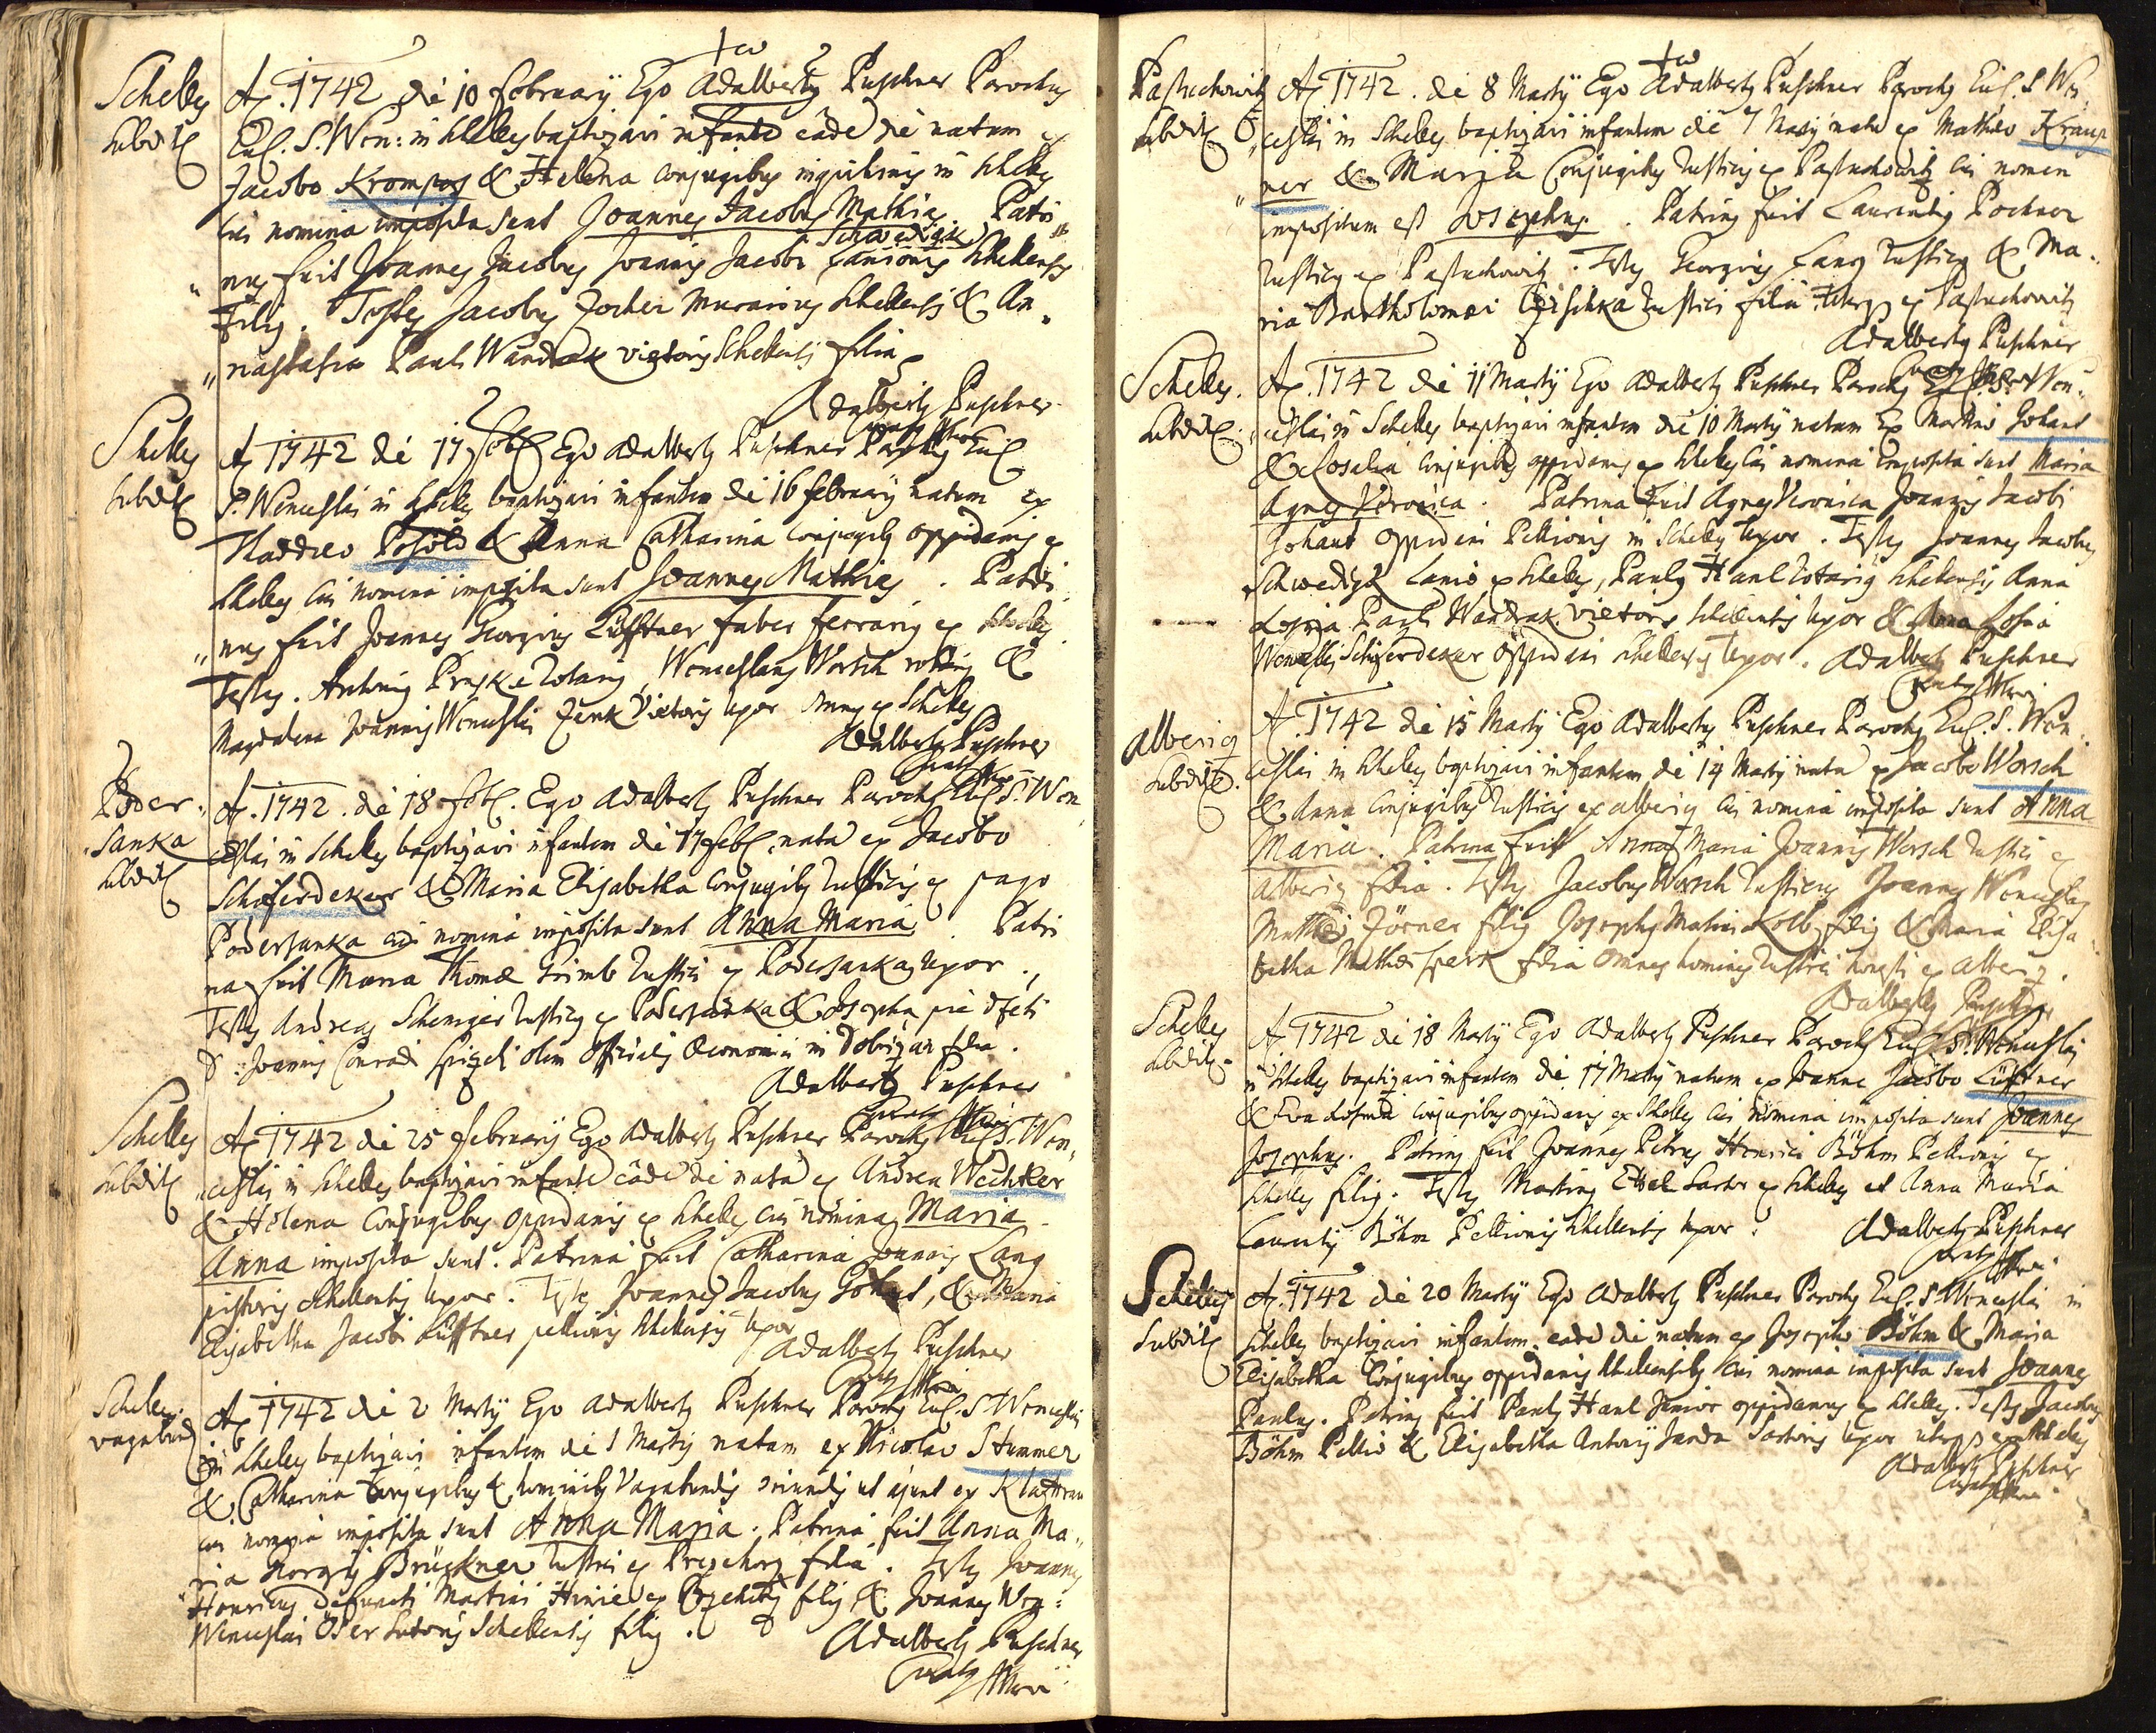 Schelles
Subdit
A. 1742 die 10 February Ego Adalberty Puschner Parochy
Eccl. S. Wen: in Schelles baptizavi infante eade die natum ex
Jacobo Krompos & Helena conjugibus inquilinis in Schelles
cui nomina imposita sunt Joannes Jacobus Mathias. Patri
nus fuit Joannes Jacobus Joannis Jacobi Schwedigk Lanionis Schellensis
Filius. Testes Jacobus Zocher Murarius Schellensis & An
nastasia Pauli Wandrak vietoris Schellensis filia
Adalberty Puschner
Schelles
Subdit
A 1742 die 17 Feb Ego Adalberty Puschner Parochy Eccl
S. Wenceslai in Schelles baptizavi infantem die 16 February natum ex
Thaddeo Posold & Anna Catharina conjugibus oppidanis ex
Schelles cui nomina imposita sunt Joannes Mathias. Patri
nus fuit Joannes Georgius Lüfftner faber ferrarius ex Schelles
Testes. Antonius Notarius, Wenceslaus Worsch &
Magdalena Joannis Wenceslai Zenk Vietoris uxor omnes ex Schelles
Adalberty Puschner
Poder
sanka
Subdit
A. 1742. die 18 Feb. Ego Adalberty Puschner Parochy Eccl S. Wen
ceslai in Schelles baptizavi infantem die 17 Feb. nata ex Jacobo
Schöferdeker & Maria Elisabetha conjugibus rusticis ex pago
Podersanka cui nomina imposita sunt Anna Maria. Patri
na fuit Maria Thomæ rustici ex Podersanka uxor.
Testes Andreas rusticus ex Podersanka & Josepha pie dfcti
D: Joannis Conradi olim Officialis Oeconomiæ in filia.
Adalberty Puschner
Schelles
Subdit
A 1742 die 25 February Ego Adalberty Puschner Parochy Eccl S. Wen
ceslai in Schelles baptizavi infante eade die nata ex Andrea Wächter
& Helena Conjugibus Oppidanis ex Schelles cui nomina Maria
Anna imposita sunt. Patrina fuit Catharina Joannis Lang
pistoris Schellensis uxor. Testes Joannes Jacobus Gohaut, & Maria
Elisabetha Jacobi Lüfftner pellionis Schellensis uxor
Adalberty Puschner
Schelles
vagabund
A 1742 die 2 Marty Ego Adalberty Puschner Parochy Eccl. S Wenceslai
in Schelles baptizavi infantem die 1 Marty natam ex Nicolao Stummer
& Catharina Conjugibus & hominibus Vagabundis oriundis ut ajunt ex
cui nomina imposita sunt Anna Maria. Patrina fuit Anna Ma
ria Georgy Brückner rustici ex filia. Testes Joannes
Henricus defuncti Martini ex filius & Joannes Wen:
Wenceslai Öser Sutoris Schellensis filius.
Adalberty Puschner
Pastuchowitz
Subdit
A 1742. die 8 Marty Ego Adalberty Puschner Parochy Eccl. S. Wen
ceslai in Schelles baptizavi infantem die 7 Marty nata ex Mathæo Kraup
ner & Maria Conjugibus rusticis ex Pastuchowitz cui nomen
impositum est Josephus. Patrinus fuit Laurentius Pochner
rusticus ex Pastuchowitz. Testes Georgius Lang rusticus & Ma
ria Bartholomæi rustici filia uterque ex Pastuchowitz
Adalberty Puschner
Schelles.
Subdit
A. 1742 die 11 Marty Ego Adalberty Puschner Parochy Eccl. S. Wen
ceslai in Schelles baptizavi infantem die 10 Marty natam ex Martino Gohaut
& Rosalia conjugibus oppidanis ex Schelles cui nomina imposita sunt Maria
Agnes Veronica. Patrina Fuit Agnes Veronica Joannis Jacobi
Gohaut Oppidani Pellionis in Schelles uxor. Testes Joannes Jacobus
Schwedigk Lanio ex Schelles, Paulus Hanl Notarius Schellensis Anna
Rosina Pauli Wandrak vietoris Schellensis uxor & Anna Rosina
Wenceslai Schöferdeker Oppidani Schellensis uxor. Adalberty Puschner
Alberiz
Subdit.
A. 1742 die 15 Marty Ego Adalberty Puschner Parochy Eccl. S. Wen
ceslai in Schelles baptizavi infantem die 14 Marty nata ex Jacobo Worsch
& Anna Conjugibus rusticis ex Alberiz cui nomina imposita sunt Anna
Maria. Patrina fuit Anna Maria Joannis Worsch rustici ex
Alberiz filia. Testes Jacobus Worsch rusticus Joannes Wenceslaus
Mathæi Zörner filius Josephus Mathiæ Kolb filius & Maria Elisa
betha Mathæi filia omnes homines rustici honesti ex Alberiz.
Adalberty Puschner
Schelles
Subdit
A 1742 die 18 Marty Ego Adalberty Puschner Parochy Eccl. S. Wenceslai
in Schelles baptizavi infantem die 17 Marty natum ex Joanne Jacobo Lüftner
& Eva Rosina conjugibus oppidanis ex Schelles cui nomina imposita sunt Joannes
Josephus. Patrinus fuit Joannes Petrus Henrici Böhm Pellionis ex
Schelles filius. Testes Martinus Sartor ex Schelles et Anna Maria
Laurenty Böhm Pellionis Schellensis uxor. Adalberty Puschner
Schelles
Subdit
A. 1742 die 20 Marty Ego Adalberty Puschner Parochy Eccl. S. Wenceslai in
Schelles baptizavi infantem eade die natum ex Josepho Böhm & Maria
Elisabetha Conjugibus oppidanis Schellensibus cui nomina imposita sunt Joannes
Paulus. Patrinus fuit Paulus Hanl Junior oppidanus ex Schelles. Testes Jacobus
Böhm Pellio & Elisabetha Antony Janda Sartoris uxor uterque ex Schelles
Adalberty Puschner